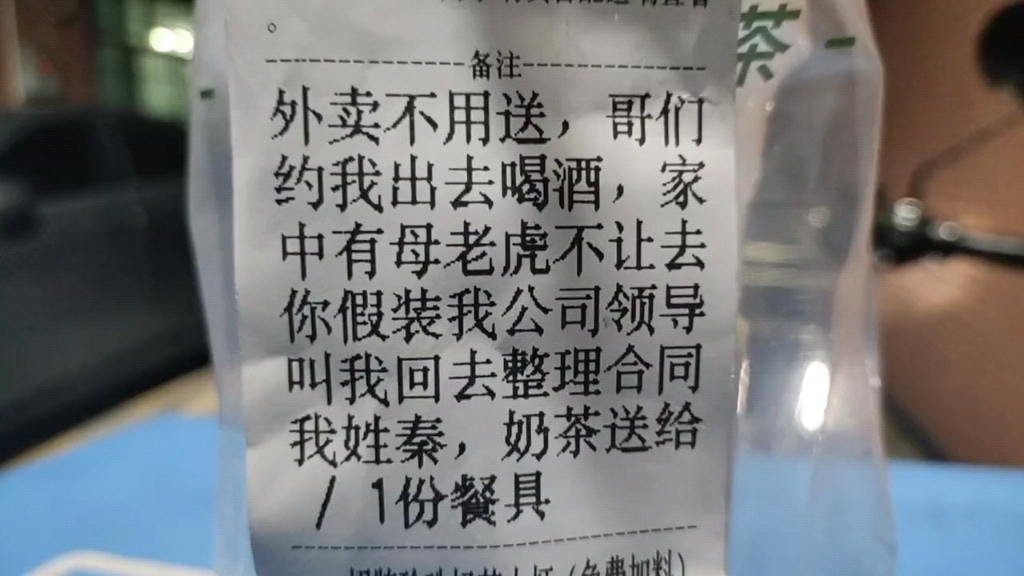 茶
。
备注
外卖不用送，哥们
约我出去喝酒，家
中有母老虎不让去
你假装我公司领导
叫我回去整理合同
我姓秦，奶茶送给
/ 1份餐具
（免费加料）